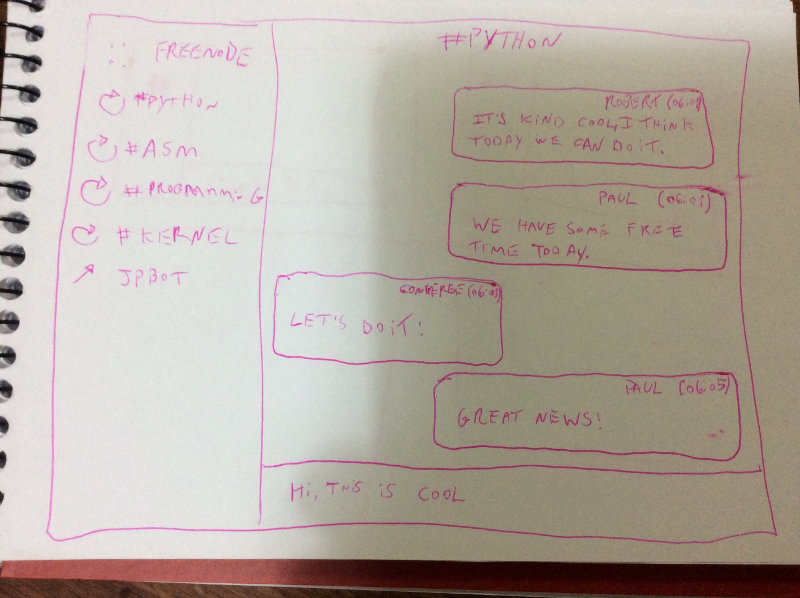 FREENODE
#PYTHON
#ASM
#PROGRAMMING
#KERNEL
JPBOT
#PYTHON
ROBERT
IT'S KIND COOL, I THINK
TODAY WE CAN DO IT.
PAUL (06:01)
WE HAVE SOME FREE
TIME TODAY.
LET'S DO IT!
PAUL (06:05)
GREAT NEWS!
Hi, THIS iS COOL